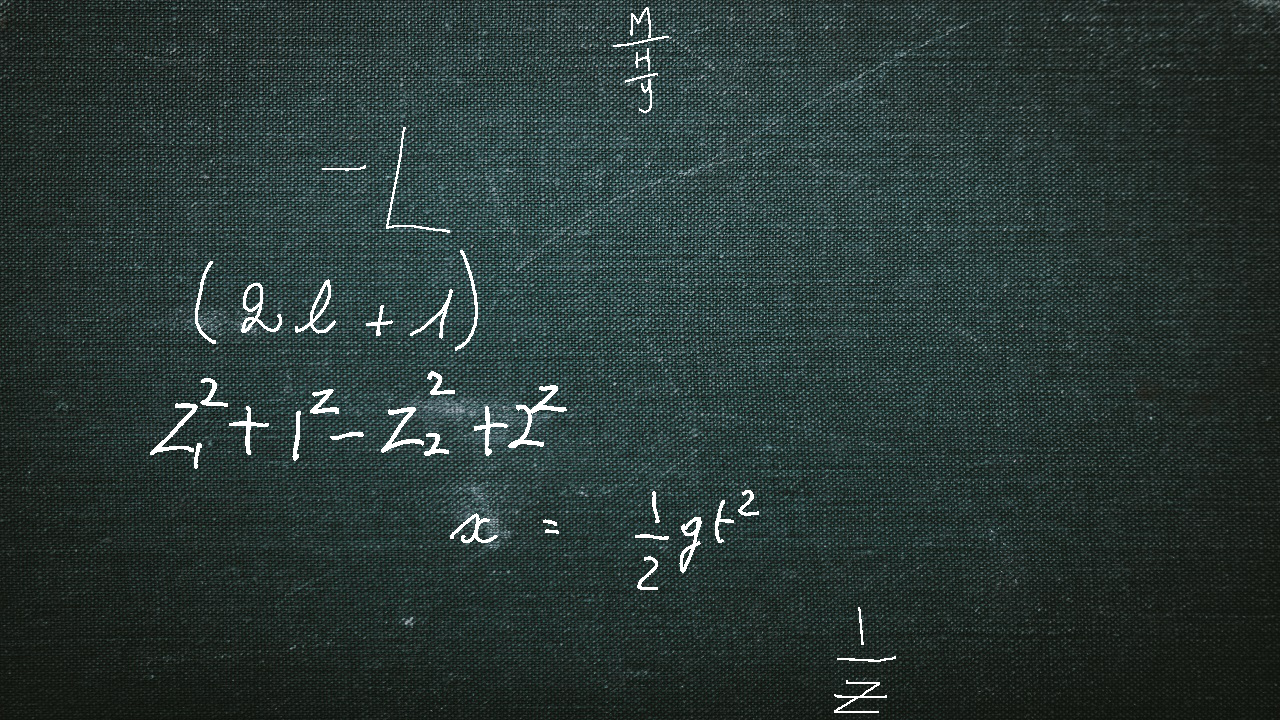 \frac{M}{\frac{H}{y}}
-L
(2l+1)
z_1^2+1^2-z_2^2+2^2
x = \frac{1}{2}gt^2
\frac{1}{z}